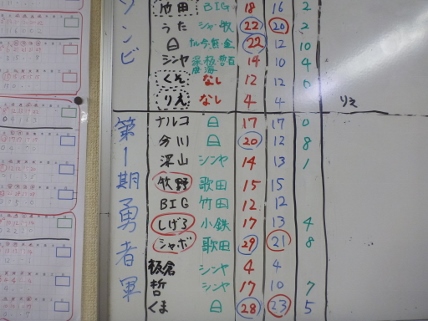 ゾンビ
池田 BIG 18 16 2
うた シャボ 22 20 2
日 22 12 10
シンヤ 14 10 4
くそ なし 12 12 0
りえ なし 4 4 りえ
第1期勇者軍
ナルコ 日 17 17 0
分川 日 20 12 8
深山 シンヤ 14 13 1
牧野 歌田 15 15
BIG 竹田 12 12
しげる 小鉄 17 13 4
シャボ 歌田 29 21 8
板倉 シンヤ 4 4
哲 シンヤ 17 10 7
くま 日 28 23 5